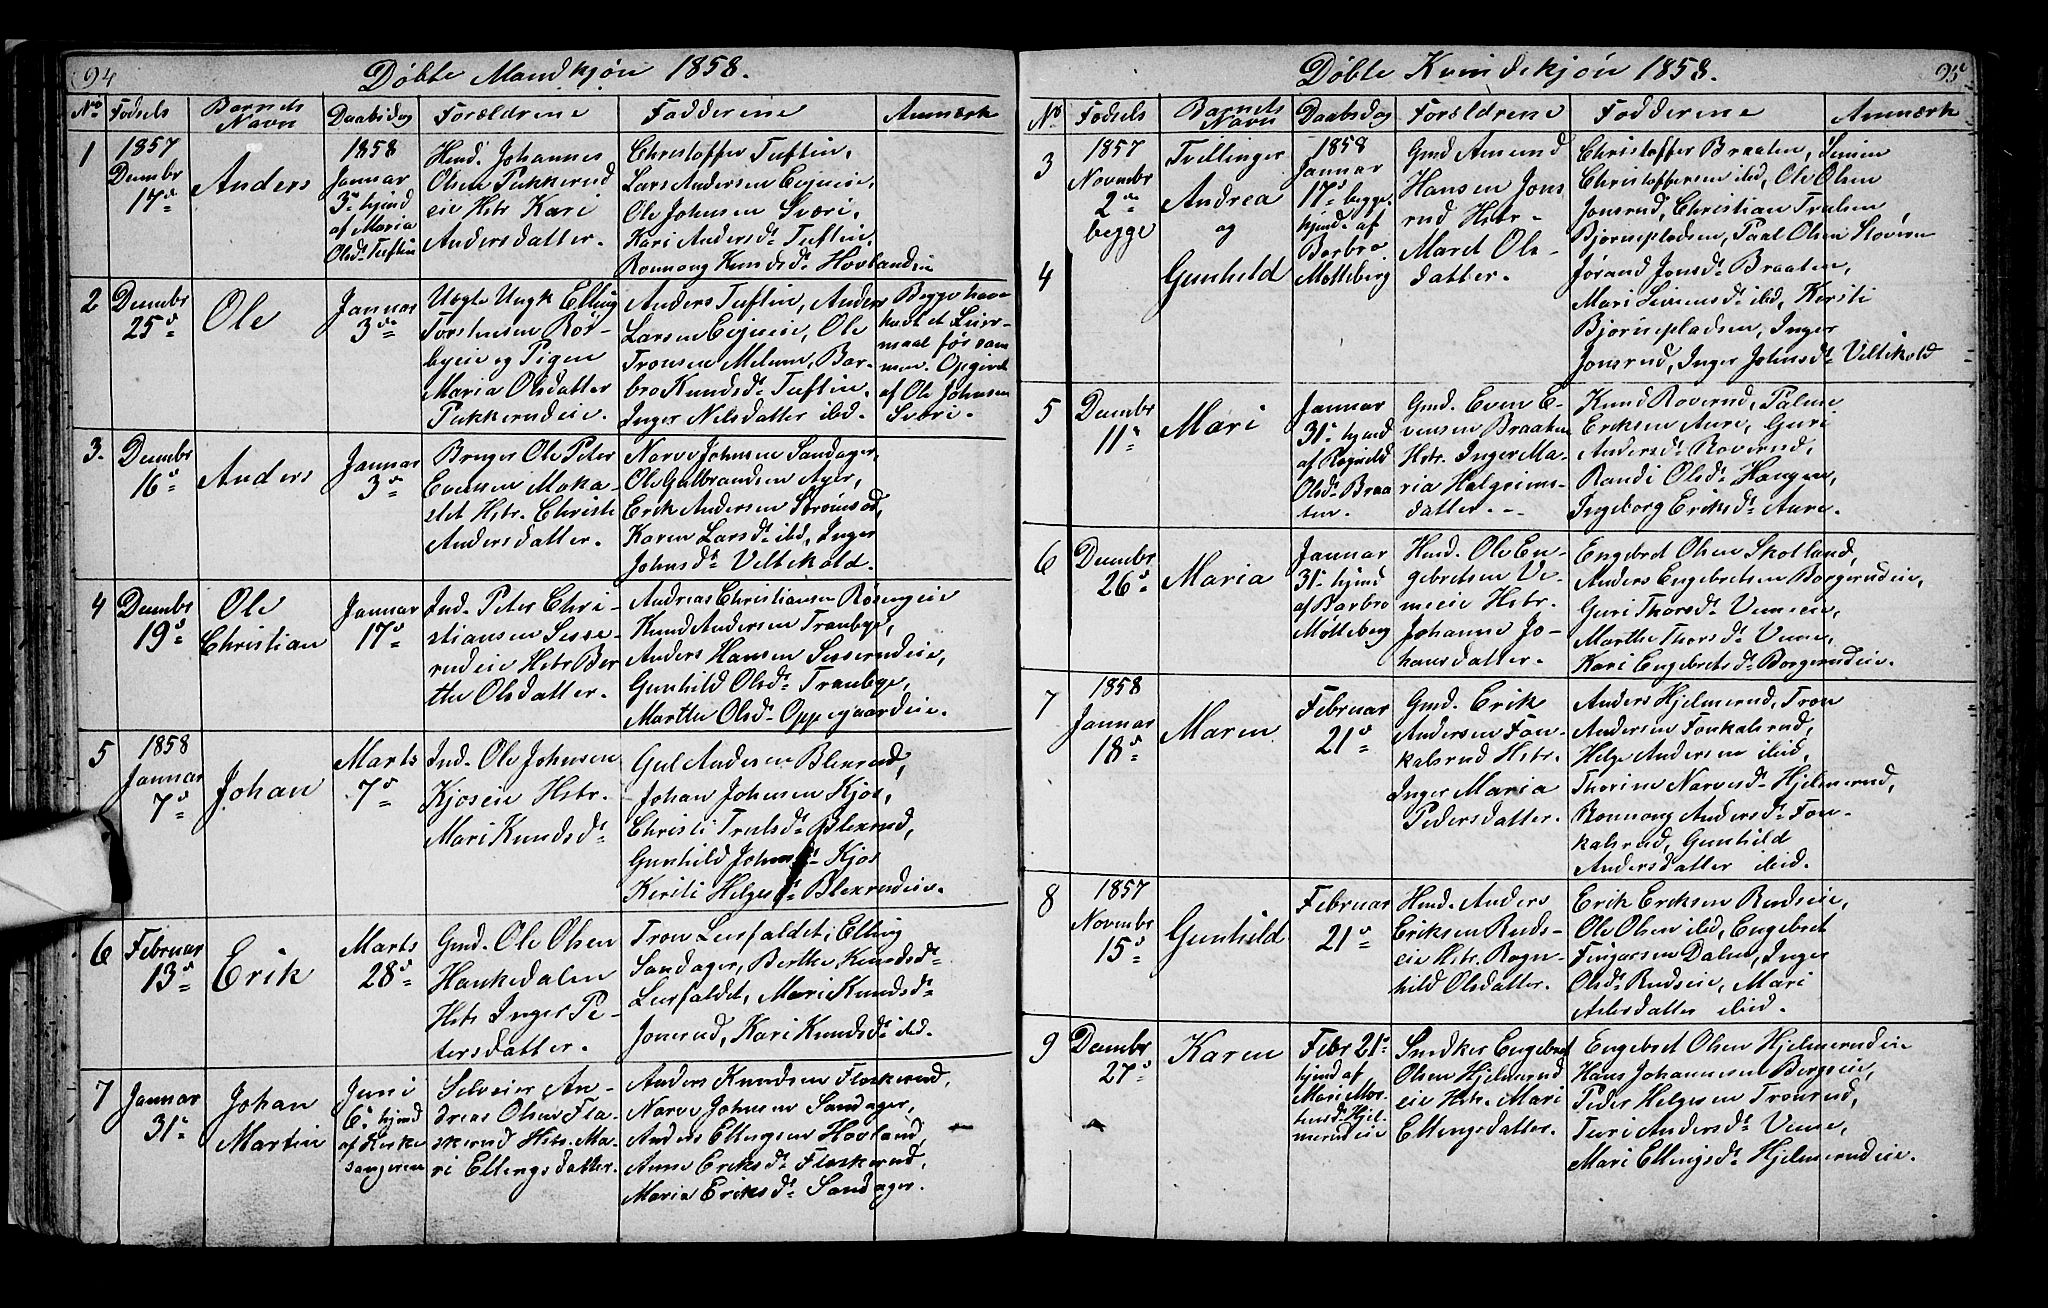 94
Döbte Mandkjön 1858.
No Fodsels Barnets Navn Daabsdag Forældrene Fadderene Anmærk
1
1857
Decembr
17de
Anders
1858
Januar
3de hjemd
af Maria
Olsdr Tuftin
Hmd. Johannes
Olsen Pukkerud
eie Hstr Kari
Andersdatter.
Christoffer Tuftin,
Lars Andersen Eojueie,
Ole Johnsen Sværi,
Kari Andersdr Tuftin,
Ronnong Knudsdr Hovlandeie
2
Decembr
25de
Ole
Januar
3de
Uægte Ungk Elling
Torstensen Rör-
byeie og Pigen
Maria Olsdatter
Pukkerudeie.
Anders Tuftin, Anders
Larsen Eojueie, Ole
Tronsen Melum, Bar-
bro Knudsdr Tuftin.
Inger Nilsdatter ibid.
Begge have
havt et Leier-
maal för sam
men. Opgivet
af Ole Johnsen
Svöri.
3.
Decembr
16de
Anders
Januar
3de
Bruger Ole Peter
Evensen Moka-
slet Hstr. Christi
Andersdatter.
Narve Johnsen Sandager,
Ole Gulbrandsen Ager,
Erik Andersen Strömsod,
Karen Larsdr ibid, Inger
Johnsdr Veltekold.
4
Decembr
19de
Ole
Christian
Januar
17de
Ind. Peter Chri-
stiansen Sesse-
rudeie Hstr Ber
the Olsdatter.
Andreas Christiansen Rösengeie
Knud Andersen Tranbye,
Anders Hansen Sesserudeie,
Gunhild Olsdr Tranbye,
Marthe Olsdr Oppegaardeie.
5
1858
Januar
7de
Johan
Marts
7de
Ind. Ole Johnsen
Kjoseie Hstr.
Mari Knudsdr
Gul Andersen Blexrud,
Johan Johnsen Kjos,
Christi Trulsdr Blexrud,
Gunhild Johnsdr Kjos
Kersti Helgesdr Blexrudeie.
6
Februar
13de
Erik
Marts
28de
Gmd. Ole Olsen
Hankedalen
Hstr Inger Pe-
tersdatter.
Tron Leerfaldet, Elling
Sandager, Berthe Knudsdr
Leerfaldet, Mari Knudsdr
Jonsrud, Kari Knudsdr ibid.
7
Januar
31te
Johan
Martin
Juni
6te hjemd
af Kirke
sangeren
Selveier An-
dreas Olsen Fla-
skerud Hstr. Ma-
ri Ellingsdatter.
Anders Knudsen Flaskerud,
Narve Johnsen Sandager,
Anders Ellingsen Hovland,
Anne Eriksdr Flaskerud,
Maria Eriksdr Sandager.
95
Döbte Kvindekjön 1858.
No Födsels Barnets Navn Daabsdag Forældrene Fadderene Anmærk
3
4
1857
Novembr
2de
begge
Tvillinger
Andrea
og
Gunhild
1858
Januar
17de begge
hjemd. af
Barbro
Mölleberg
Gmd Amund
Hansen Jons
rud Hstr-
Maret Ols
datter.
Christoffer Braaten, Simen
Christoffersen ibid, Ole Olsen
Jonsrud, Christian Trulsen
Bjørnepladsen, Paal Olsen Stövern
Jørand Jonsdr Braaten,
Mari Simensdr ibid, Kersti
Bjørnepladsen, Inger
Jonsrud, Inger Johnsdr Veltekold
5
Decembr
11te
Mari
Januar
31te hjemd
af Ragnild
Olsdr Braa
ten.
Gmd. Even E-
vensen Braaten
Hstr. Inger Ma-
ria Halgrims-
datter.
Knud Roverud, Palme
Eriksen Aure, Guri
Andersdr Roverud,
Randi Olsdr Haugen,
Ingeborg Eriksdr Aure.
6
Decembr
26de
Maria
Januar
31te hjemd
af Barbro
Mölleberg
Hmd. Ole En-
gebretsen Ve-
meeie Hstr.
Johanne Jo-
hansdatter.
Engebret Olsen Skotland,
Anders Engebretsen Borgerudeie,
Guri Thorsdr Vemeeie,
Marthe Thorsdr Veme,
Kari Engebretsdr Borgerudeie.
7
1858
Januar
18de
Maren
Februar
21de
Gmd. Erik
Andersen Fon-
kalsrud Hstr.
Inger Maria
Pedersdatter.
Anders Hjelmerud, Tron
Andersen Fonkalsrud,
Helge Andersen ibid,
Thorine Narvesdr Hjelmerud,
Ronnong Andersdr Fon-
kalsrud, Gunhild
Andersdatter ibid.
8
1857
Novembr
15de
Gunhild
Februar
21de
Hmd. Anders
Eriksen Ruds-
eie Hstr. Ragn-
hild Olsdatter.
Erik Eriksen Rudseie,
Ole Olsen ibid, Engebret
Fingarsen Dalen, Inger
Olsdr Rudseie, Mari
Atlesdatter ibid.
9
Decembr
27de
Karen
Febr 21de
hjemd af
Mari Mor-
tensdr Hjel-
merudeie
Smdker Engebret
Olsen Hjelmerud
eie Hstr. Mari
Ellingsdatter.
Engebret Olsen Hjelmerudeie
Hans Johannesen Bergseie,
Peder Helgesen Tronrud,
Turi Andersdr Veme,
Mari Ellingsdr Hjelmerudeie.